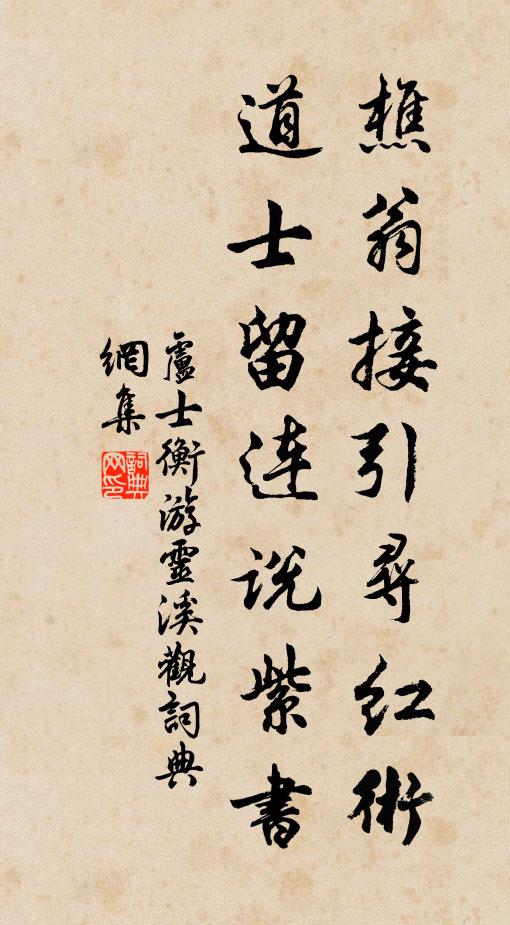 樵翁接引尋紅術
道士留连说紫書
盧士衡游靈溪觀詞典
網集
詞典
网印